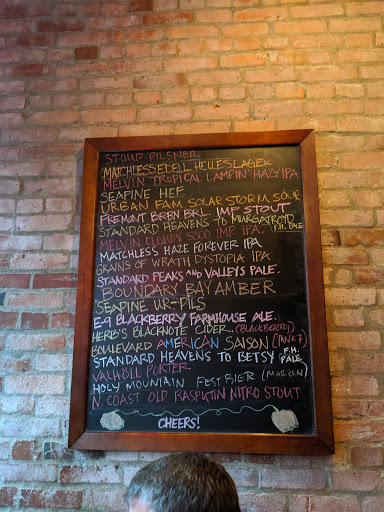 STOUP PILSNER
MATCHLESS EDELL HELLES LAGER
MELVIN TROPICAL LAMPIN' HAZY IPA
SEAPINE HEF
URBAN FAM SOLAR STORM SOUR
FREMONT BRBN BRL IMP. STOUT
STANDARD HEAVENS TO MURGATROYD F.H. PALE
MELVIN CLOUDY 5000 IMP. IPA.
MATCHLESS HAZE FOREVER IPA
GRAINS OF WRATH DYSTOPIA IPA
STANDARD PEAKS AND VALLEYS PALE.
BOUNDARY BAY AMBER
SEAPINE UR-PILS
E-9 BLACKBERRY FARMHOUSE ALE.
HERB'S BLACKNOTE CIDER... (BLACKBERRY)
BOULEVARD AMERICAN SAISON (TANK 7)
STANDARD HEAVENS TO BETSY F.H. PALE
VALHÖLL PORTER
HOLY MOUNTAIN FEST BIER (MARZEN)
N. COAST OLD RASPUTIN NITRO STOUT
CHEERS!